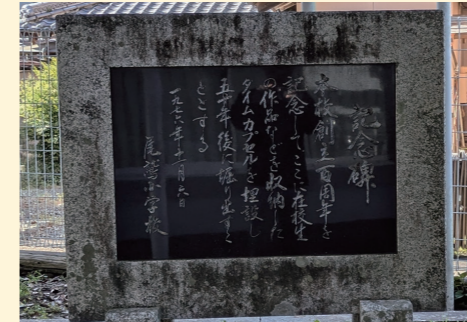 記念碑
本校創立百周年を
記念してここに在校生
の作品などを収納した
タイムカプセルを埋設し
五十年後に掘り出すこ
ととする
一九七六年十一月六日
尾鷲小学校